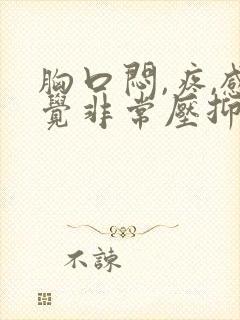 胸口悶,疼,感
覺非常壓抑
不諫